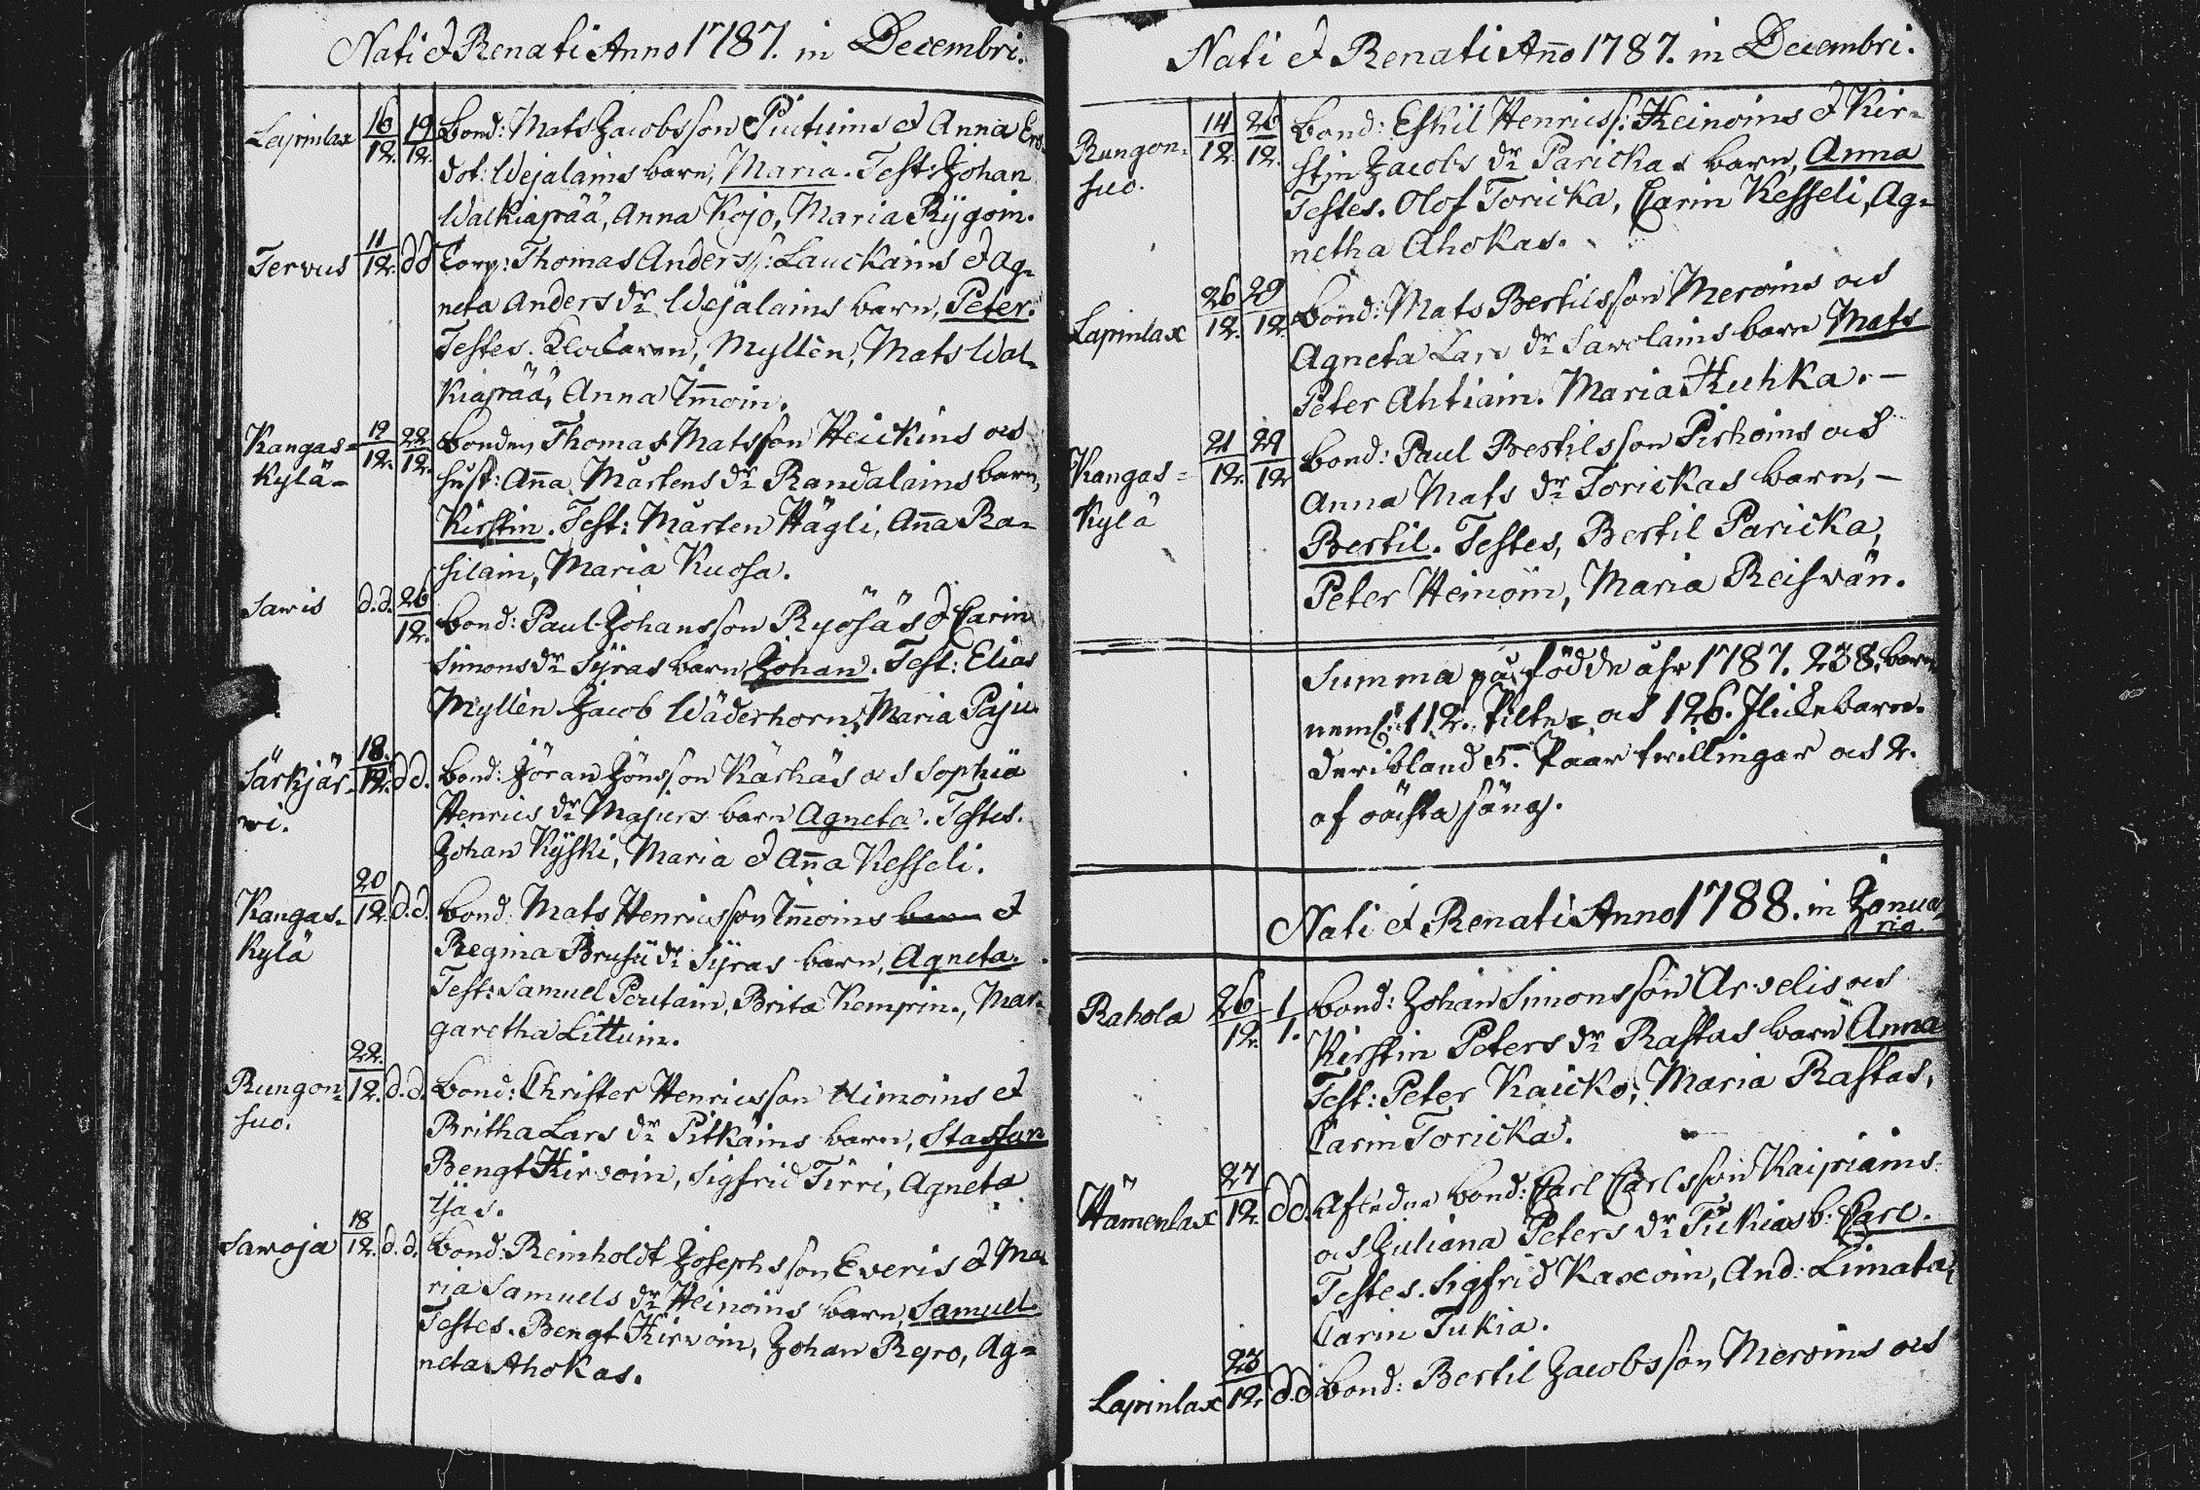 Nati et Renati Anno 1787. in Decembri.
Lapinlax 16/12. 19/12. bond: Mats Jacobsson Piutuins et Anna Ers
dot: Wejalains barn, Maria. Test: Johan
Walkiapää, Anna Kojo, Maria Rÿgoin.
Tervus 11/12. dd Torp: Thomas Anders s: Lauckains et Ag=
neta Anders dr Wejalains barn, Peter.
Testes. Klockaren, Myllèn, Mats Wal=
kiapää, Anna Im̄oin.
Kangas= 19/12. 22/12. bonden Thomas Matsson Heickins och
kylä hust: An̄a Mårtens dr Randalains barn,
Kirstin. Test: Mårten Hägli, An̄a Ra=
silain, Maria Kuosa.
Sawis d.d. 26/12. bond: Paul Johansson Ryösäs et Carin
Simons dr Sÿras barn Johan. Test: Elias
Myllèn Jacob Wäderhorn, Maria Paju.
Särkjär= 18/12. dd. bond: Jöran Jönsson Kärhäs och Sophia
wi. Henrics dr Masurs barn Agneta. Testes.
Johan Kÿski, Maria et An̄a Kesseli.
Kangas= 20/12. d.d. bond: Mats Henricsson Im̄oins barn et
kylä Regina Brusii dr Sÿras barn, Agneta.
Test: Samuel Peutain, Brita Kempin., Mar=
garetha Littuin.
Rungon= 22/12. d.d. bond: Christer Henricsson Himoins et
suo. Britha Lars dr Pitkäins barn, Staffan
Bengt Hirvoin, Sigfrid Tirri, Agneta
Ijäs.
Sawoja 18/12. d.d. bond: Reinholdt Josephsson Everis et Ma
ria Samuels dr Heinoins barn, Samuel.
Testes. Bengt Hirvoin, Johan Repo, Ag=
neta Ahokas.
Nati et Renati An̄o 1787. in Decembri.
Rungon= 14/12. 26/12. bond: Eskil Henrics s: Heinoins et Kir=
suo. stin Jacobs dr Parickas barn, Anna
Testes. Olof Toricka, Carin Kesseli, Ag=
netha Ahokas.
Lapinlax 26/12. 29/12 bond: Mats Bertilsson Meroins och
Agneta Lars dr Savolains barn Mats
Peter Ahtiain. Maria Huhka. —
Kangas= 21/12. 29/12 bond: Paul Bertilsson Pirhoins och
kylä Anna Mats dr Torickas barn, —
Bertil. Testes, Bertil Paricka,
Peter Heinoin, Maria Reiswän.
Summa på födde åhr 1787. 238. barn
neml: 112. Pilte= och 126. Flickebarn.
deribland 5. Paar twillingar och 2.
af oächta säng.
Nati et Renati Anno 1788. in Janua
rio.
Rahola 26/12. 1/1. bond: Johan Simonsson Arvelis och
Kirstin Peters dr Rastas barn Anna
Test: Peter Kaicko, Maria Rastas,
Carin Toricka.
Hämenlax 27/12. dd. Afledne bond: Carl Carlsson Kaipiains
och Juliana Peters dr Tukias b: Carl.
Testes. Sigfrid Kaxoin, And: Limata,
Carin Tukia.
Lapinlax 23/12. d.d bond: Bertil Jacobsson Meroins och